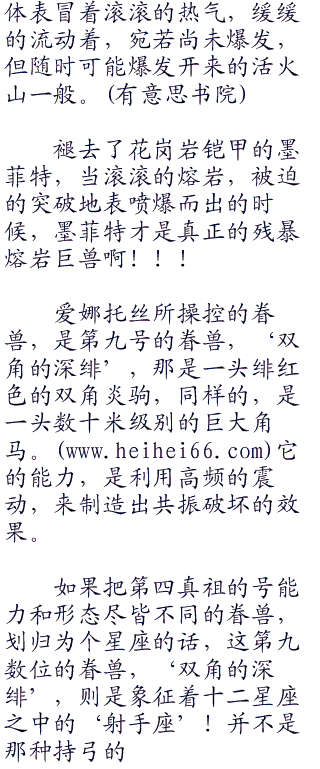 体表冒着滚滚的热气，缓缓
的流动着，宛若尚未爆发，
但随时可能爆发开来的活火
山一般。(有意思书院)
褪去了花岗岩铠甲的墨
菲特，当滚滚的熔岩，被迫
的突破地表喷爆而出的时
候，墨菲特才是真正的残暴
熔岩巨兽啊！！！
爱娜托丝所操控的眷
兽，是第九号的眷兽，‘双
角的深绯’，那是一头绯红
色的双角炎驹，同样的，是
一头数十米级别的巨大角
马。(www.heihei66.com)它
的能力，是利用高频的震
动，来制造出共振破坏的效
果。
如果把第四真祖的号能
力和形态尽皆不同的眷兽，
划归为个星座的话，这第九
数位的眷兽，‘双角的深
绯’，则是象征着十二星座
之中的‘射手座’！并不是
那种持弓的